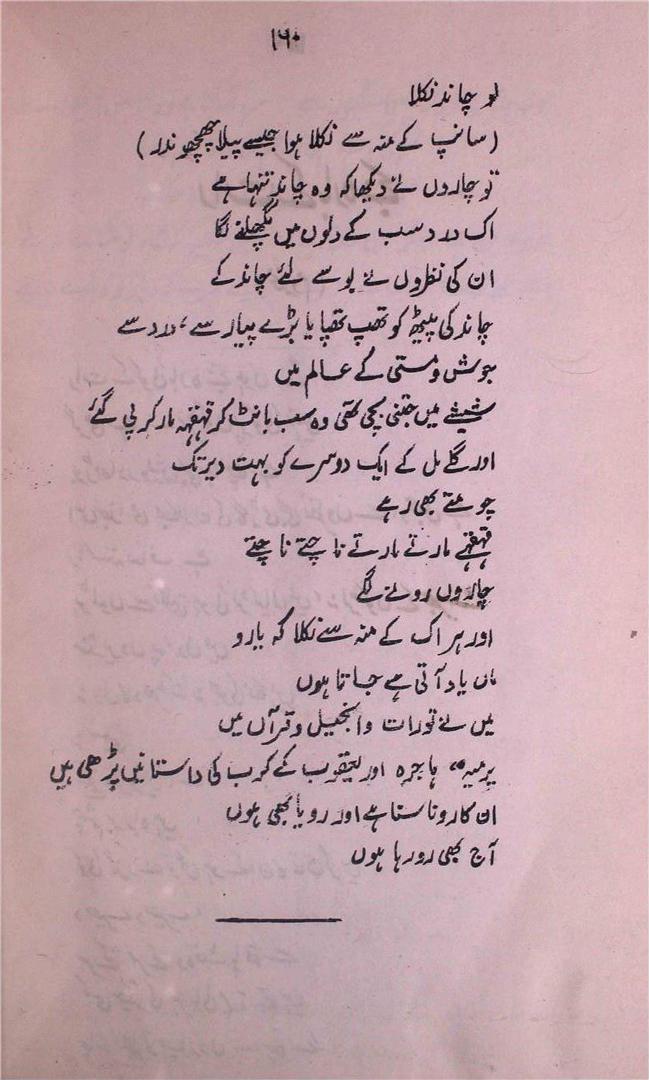 ۱۶۰
لو چاند نکلا
(سانپ کے منہ سے نکلا ہوا جیسے پیلا چھچھوندر)
تو چاروں نے دیکھا کہ وہ چاند تنہا ہے
اک درد سب کے دلوں میں پگھلنے لگا
ان کی نظروں نے بوسے لئے چاند کے
چاند کی پیٹھ کو تھپ تھپایا بڑے پیار سے، درد سے
جوش و مستی کے عالم میں
شیشے میں جتنی بچی تھی وہ سب بانٹ کر قہقہہ مار کر پی گئے
اور گلے مل کے ایک دوسرے کو بہت دیر تک
چومتے بھی رہے
قہقہے مارتے مارتے ناچتے ناچتے
چاروں رونے لگے
اور ہر اک کے منہ سے نکلا کہ یارو
ماں یاد آتی ہے جاتا ہوں
میں نے تورات و انجیل و قرآں میں
یرمیہ، ہاجرہ اور یعقوب کے کرب کی داستانیں پڑھی ہیں
ان کا رونا سنا ہے اور رویا بھی ہوں
آج بھی رو رہا ہوں